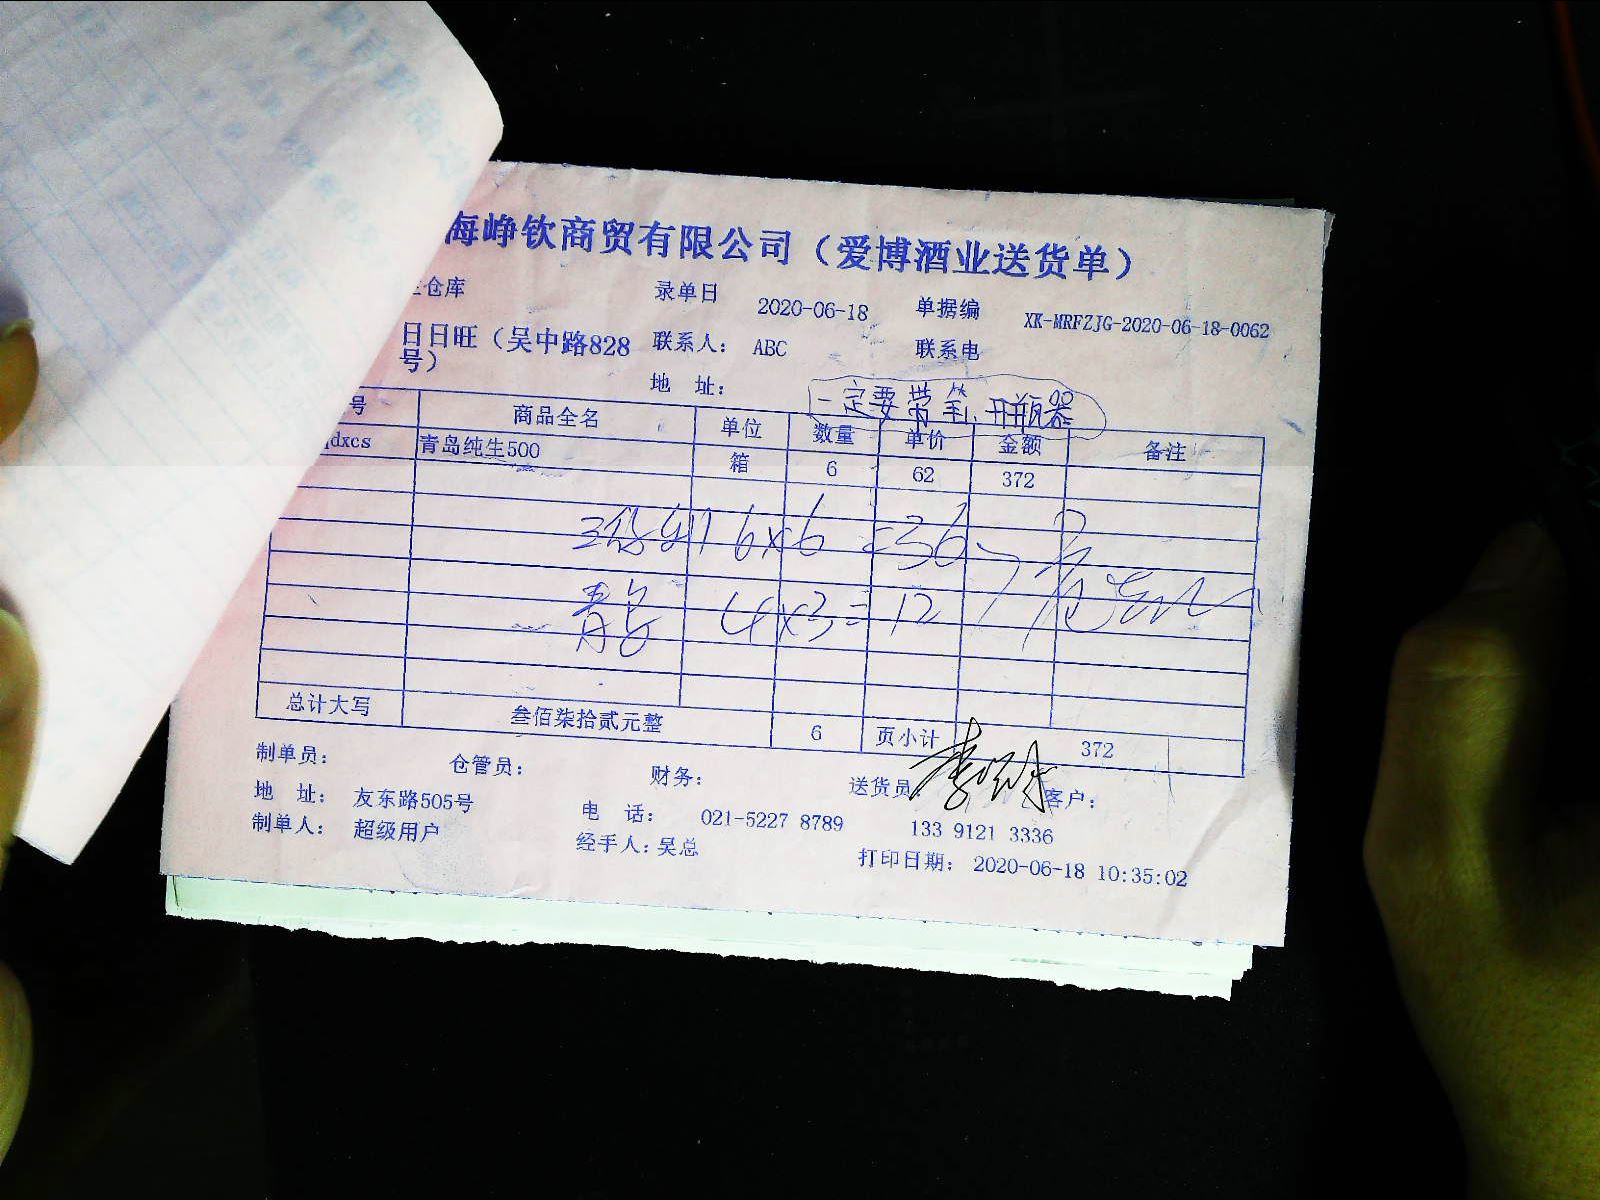 海峥钦商贸有限公司（爱博酒业送货单）
仓库 录单日 2020-06-18 单据编 XK-MRFZJG-2020-06-18-0062
日日旺（吴中路828号） 联系人： ABC 联系电
地 址：
一定要带 开瓶器
号 商品全名 单位 数量 单价 金额 备注
dxcs 青岛纯生500 箱 6 62 372
6×6=36
青岛 4×3=12
总计大写 叁佰柒拾贰元整 6 页小计 372
制单员： 仓管员： 财务： 送货员 客户：
地 址： 友东路505号 电 话： 021-5227 8789 133 9121 3336
制单人： 超级用户 经手人：吴总 打印日期： 2020-06-18 10:35:02